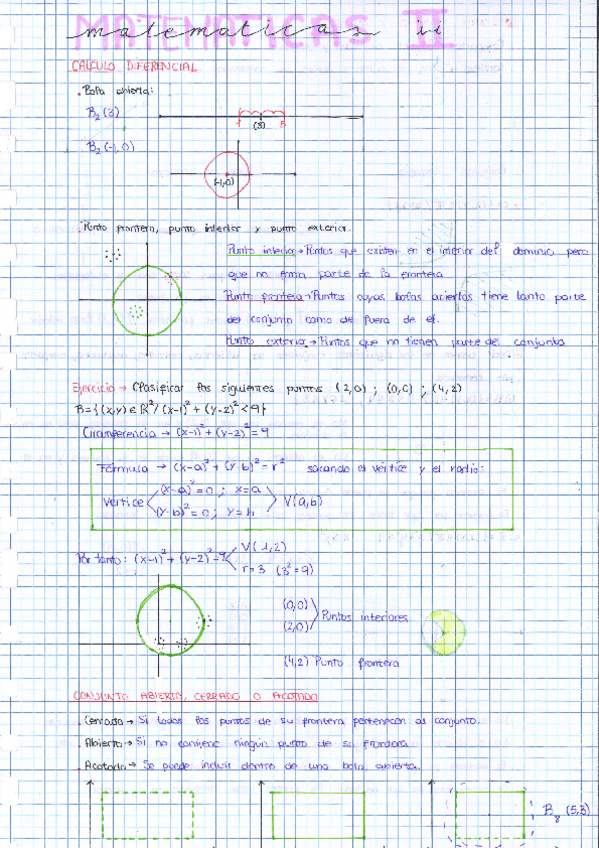 MATEMATICAS II
matematicas ii
CALCULO DIFERENCIAL
. Bola abierta:
B₂ (3)
(3)
B₂ (-1,0)
(-1,0)
. Punto frontera, punto interior y punto exterior.
Punto interior → Puntos que existen en el interior del dominio pero
que no son parte de la frontera
Punto frontera → Puntos cuyas bolas abiertas tiene tanto parte
del conjunto como de fuera de él.
Punto exterior → Puntos que no tienen parte del conjunto
Ejercicio → Clasificar los siguientes puntos (2,0) ; (0,0) ; (4,2)
B={(x,y) ∈ R² / (x-1)² + (y-2)² < 9}
Circunferencia → (x-1)² + (y-2)² = 9
Fórmula → (x-a)² + (y-b)² = r² sacando el vértice y el radio:
Vértice (x-a)² = 0 ; x=a
(y-b)² = 0 ; y=b
V(a,b)
Por tanto: (x-1)² + (y-2)² = 9
V(1,2)
r=3 (3²=9)
(0,0)
(2,0)
Puntos interiores
(4,2) Punto frontera
CONJUNTO ABIERTO, CERRADO O ACOTADO
. Cerrado → Si todos los puntos de su frontera pertenecen al conjunto.
. Abierto → Si no contiene ningún punto de su frontera
. Acotado → Se puede incluir dentro de una bola abierta.
(5,3)